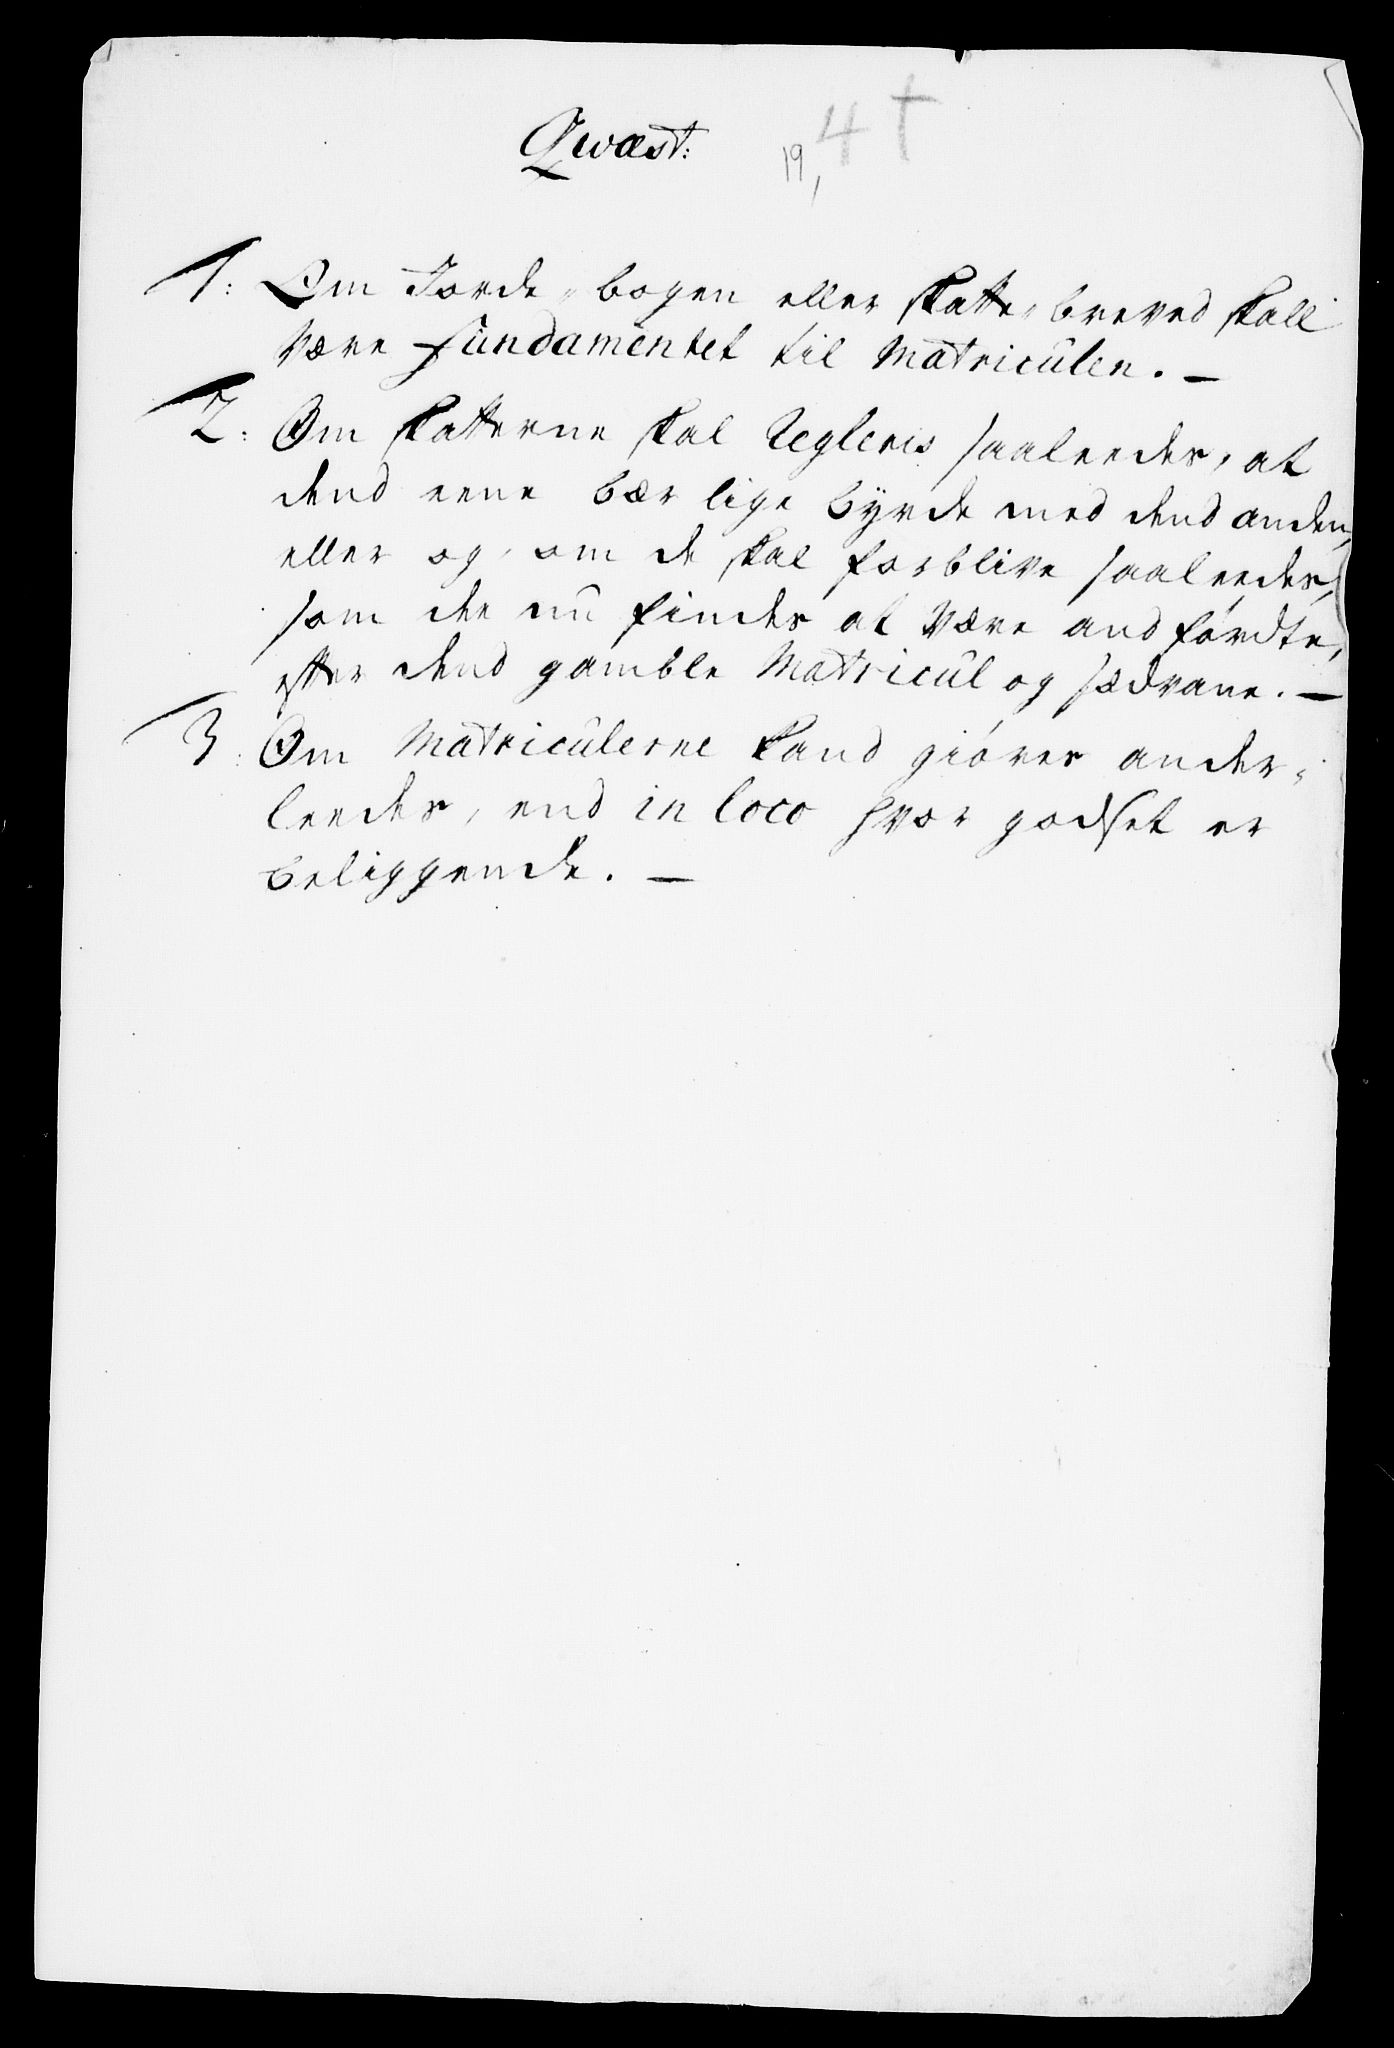 Qvæst:
19, 4 †
1: Om Jorde-bogen eller skatte-breved skall
være fundamentet til Matriculen. —
2: Om skatterne skal Regleris saaleedes, at
dend eene bær lige byrde med dend anden,
eller og, om de skal forblive saaleedes,
som de nu findes at være andførdte,
efter dend gamble Matricul og sædvane. —
3: Om Matriculerne kand giøres ander-
leedes, end in loco hvor godset er
beliggende. —